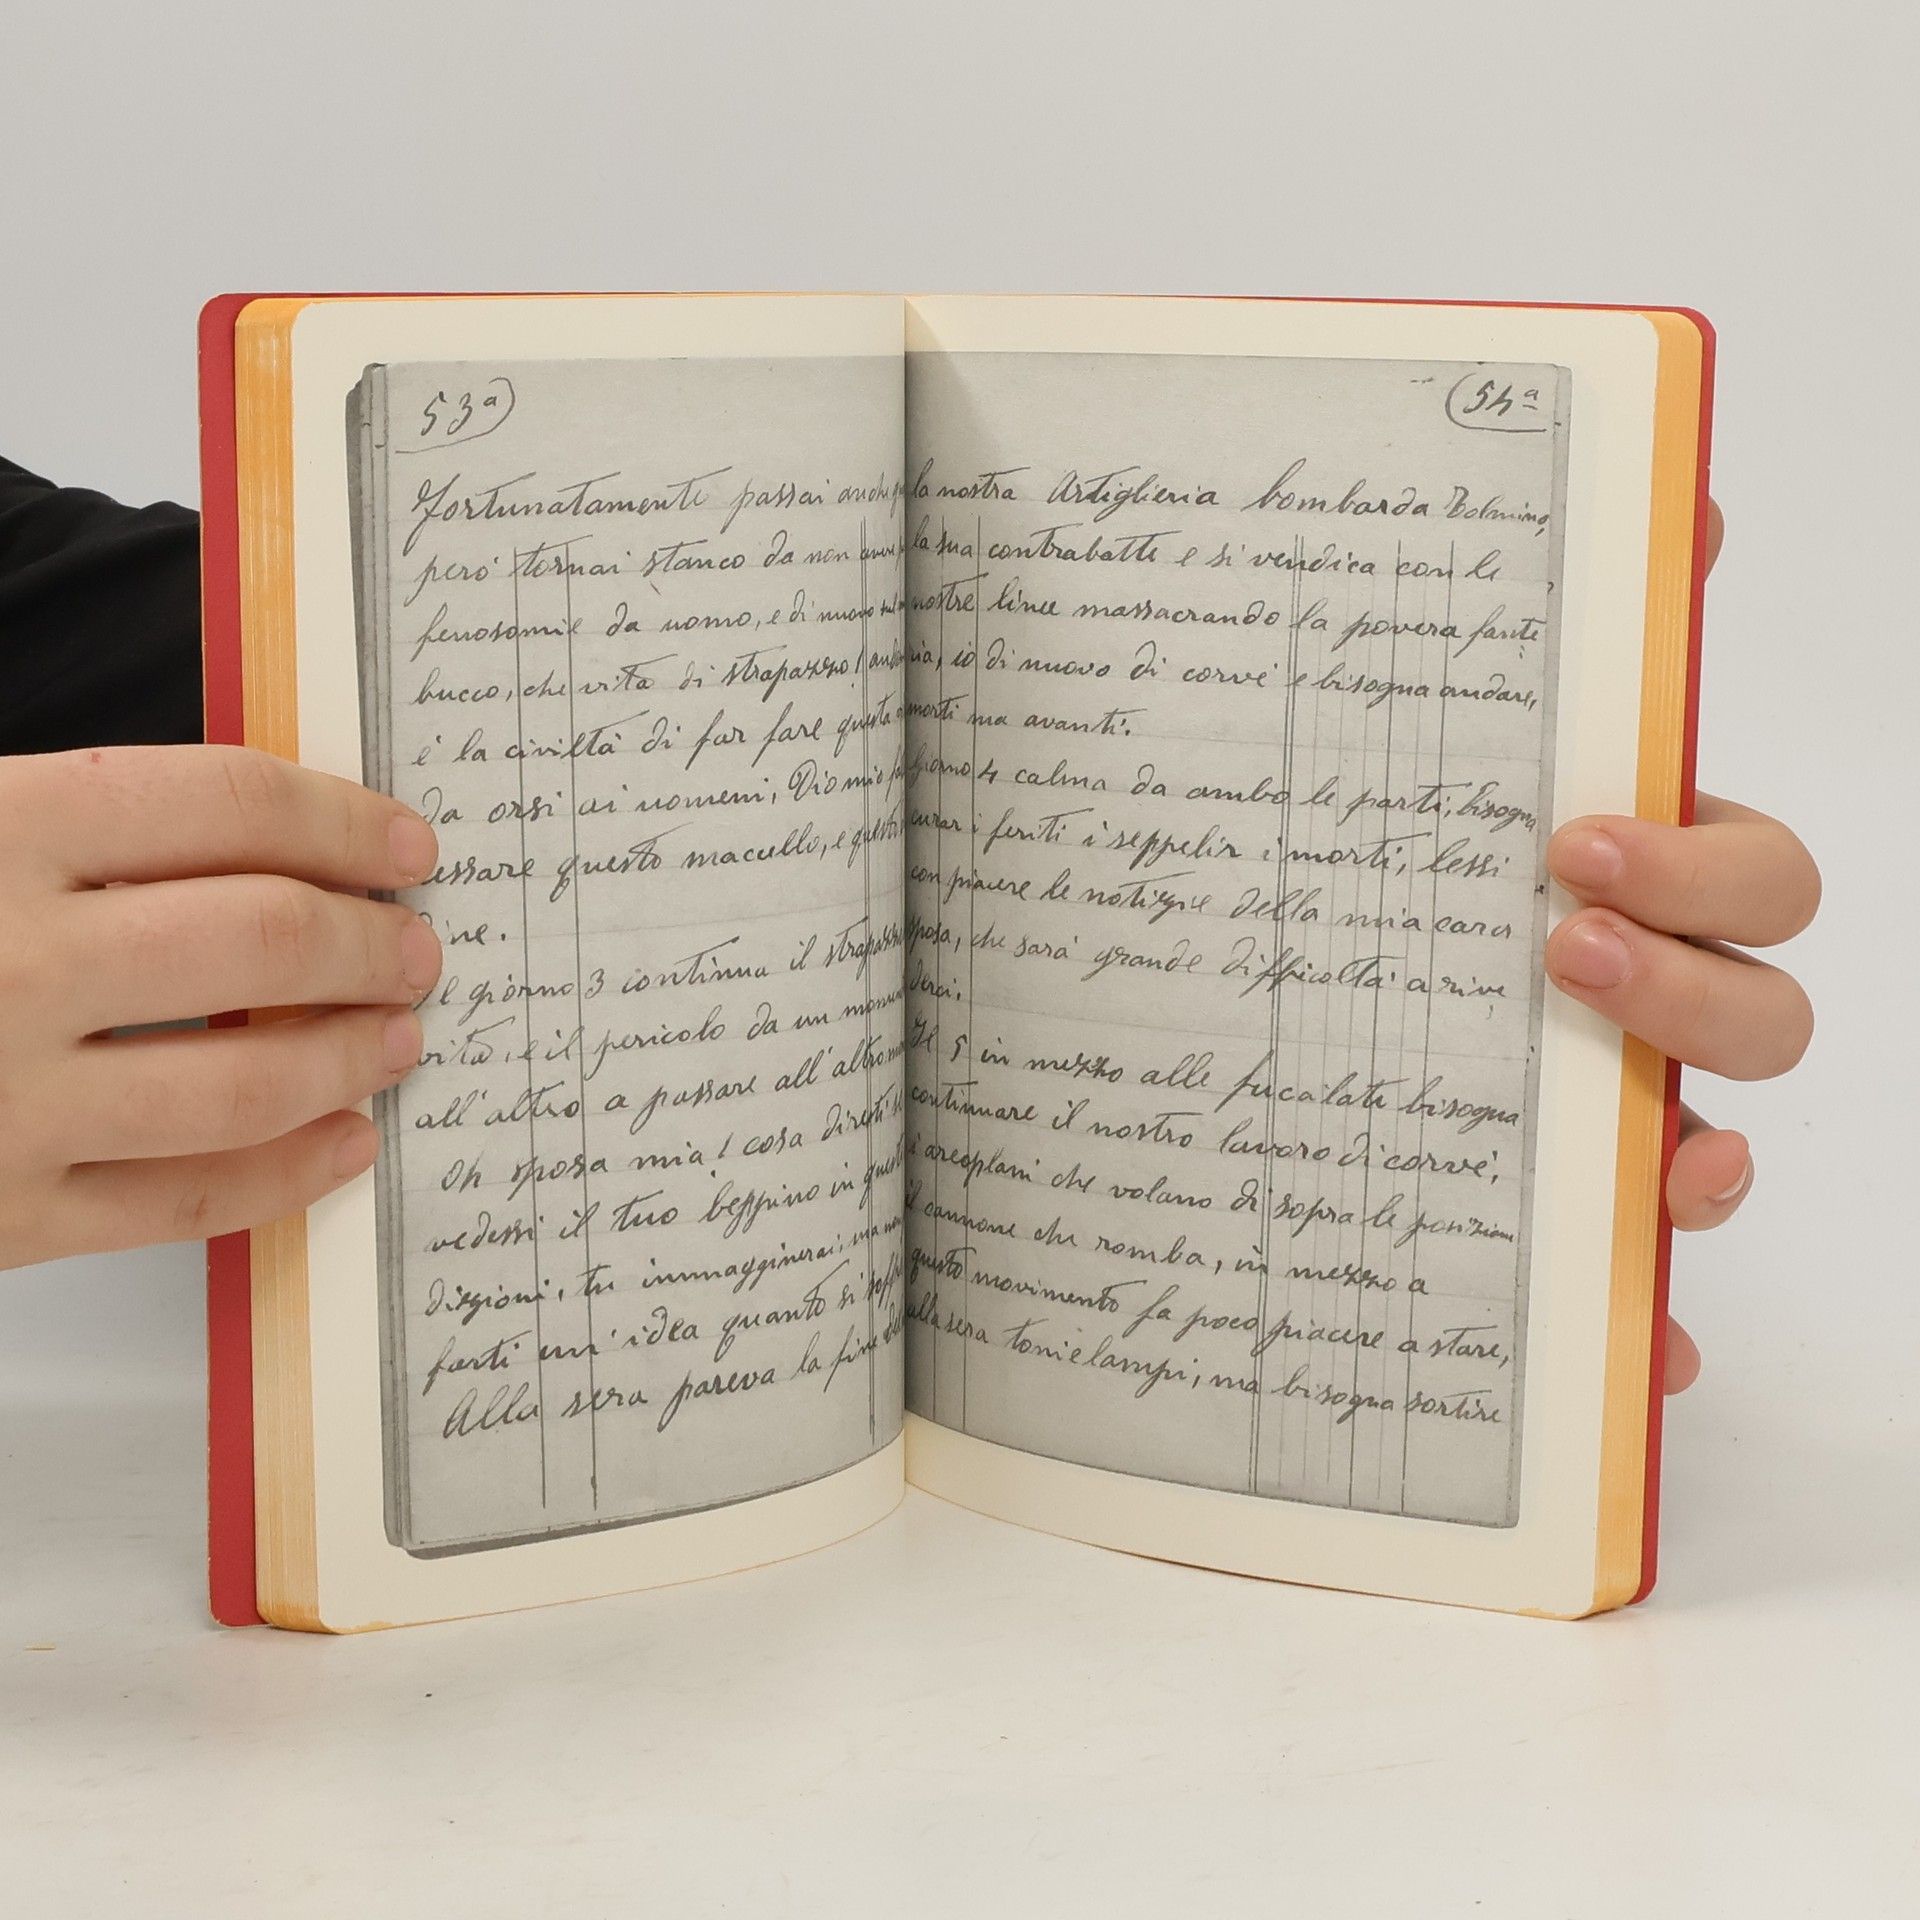 53ª
Fortunatamente passai anche
però tornai stanco da non avere
fenosomie da uomo, e di nuovo sul
bucco, che vita di strapazzo!
è la civiltà di far fare questa
da orsi ai uomeni, Dio mio
cessare questo macello, e
dine.
Il giorno 3 continua il strapazzo
vita, e il pericolo da un
all'altro a passare all'altro
Oh sposa mia! cosa diresti se
vedessi il tuo beppino in queste
dizzioni, tu immagginerai, ma non
farti un'idea quanto si soffre
Alla sera pareva la fine del
54ª
la nostra Artiglieria bombarda Tolmino,
la sua contrabatte e si vendica con le
nostre linee massacrando la povera fante
ria, io di nuovo di corvé e bisogna andare,
morti ma avanti.
Giorno 4 calma da ambo le parti, bisogna
curar i feriti i seppelir i morti, lessi
con piacere le notizzie della mia cara
sposa, che sarà grande difficoltà a rive
derci.
Il 5 in mezzo alle fucilate bisogna
continuare il nostro lavoro di corvé,
i areoplani che volano di sopra le posizioni
il cannone che romba, in mezzo a
questo movimento fa poco piacere a stare,
alla sera toni e lampi, ma bisogna sortire